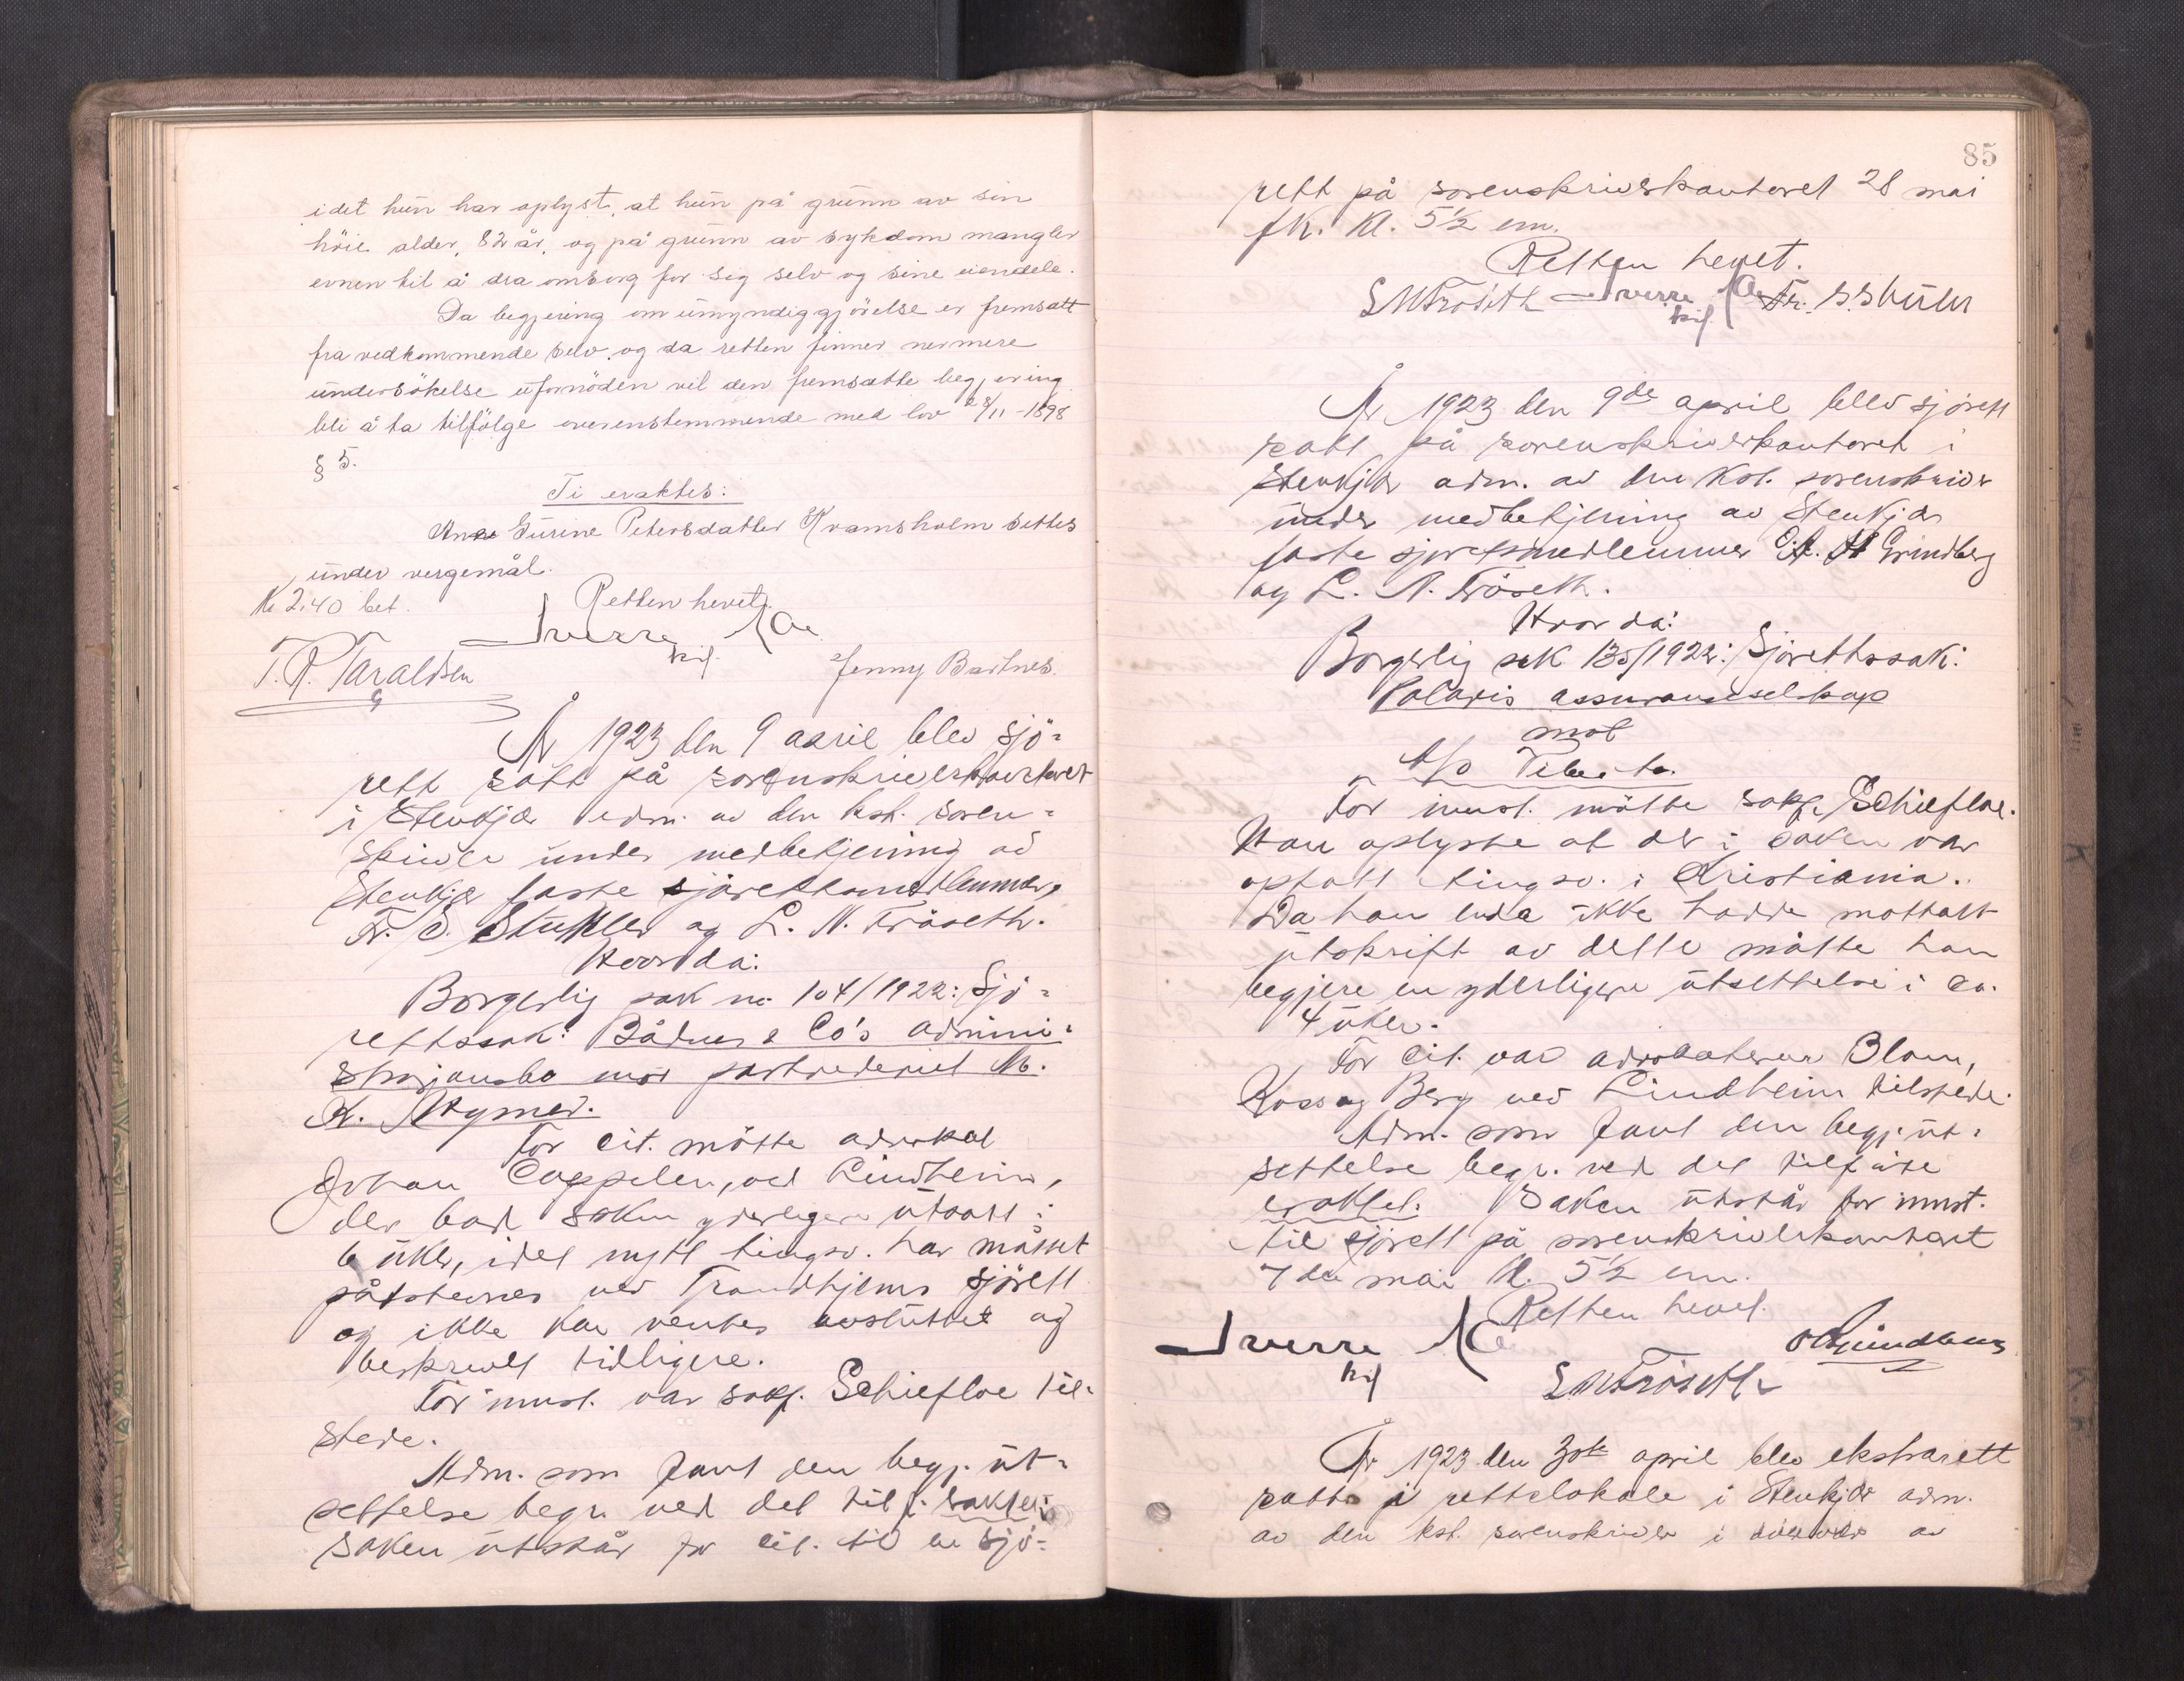 idet hun har oplyst, at hun på grunn av sin
höie alder, 82 år, og på grunn av sykdom mangler
evnen til å dra omsorg for sig selv og sine eiendele.
Da begjering om umyndiggjörelse er fremsatt
fra vedkommende selv, og da retten finner nermere
undersökelse ufornöden vil den fremsatte begjering
bli å ta tilfölge overenstemmende med lov 28/11-1898
§ 5.
Ti eraktes:
Gurine Petersdatter Kvamsholm settes
under vergemål.
Kr 2.40 bet.
Retten hevet.
Sverre
kst.
T. R. Taraldsen
Jenny Bartnes.
År 1923 den 9 april blev sjö-
rett satt på sorenskriverkontoret
i Stenkjær adm. av den kst. soren-
skriver under medbetjening av
Stenkjær faste sjörettsmedlemmer,
Fr. S. Stühler og L. N. Fröseth.
Hvorda:
Borgerlig sak nr 104/1922: Sjö-
rettssak: & Co's admini-
strasjonsbo mot partrederiet M.
K.
For cit. mötte advokat
Johan Cappelen, ved Lindheim,
der bad saken yderligere utsatt i
6 uker, idet nytt tingsv. har måttet
påstevnes ved Trondhjems sjörett
og ikke kan ventes avsluttet og
beskrevet tidligere.
For innst. var sakf. Schiefloe til-
stede.
Adm. som fant den begj. ut-
settelse begr. ved det tilf. eraktet:
Saken utstår for cit. til en sjö-
85
rett på sorenskriverkontoret 28 mai
fk. kl. 5½ em.
Retten hevet.
L N Fröseth Sverre Fr. S. Stühler
kst.
År 1923 den 9de april blev sjörett
satt på sorenskriverkontoret i
Stenkjær adm. av den kst. sorenskriver
under medbetjening av Stenkjær
faste sjöretsmedlemmer Grindberg
og L. N. Fröseth.
Hvor da:
Borgerlig sak 135/1922: Sjörettssak:
Polaris assuranseselskap
mot
A/S
For innst. mötte sakf. Schiefloe.
Han oplyste at der i saken var
optatt tingsv. i Kristiania.
Da han enda ikke hadde mottatt
utskrift av dette måtte han
begjere en yderligere utsettelse i ca.
4 uker.
For cit. var advokaterne Blom,
og Berg ved Lindheim tilstede.
Adm. som fant den begj. ut-
settelse begr. ved det tilförte
eraktet: Saken utstår for innst.
til sjörett på sorenskriverkontoret
7de mai kl. 5½ em.
Retten hevet.
Sverre
kst
Grindberg
L N Fröseth
År 1923 den 30te april blev ekstrarett
satt i rettslokale i Stenkjær adm.
av den kst. sorenskriver i nærvær av